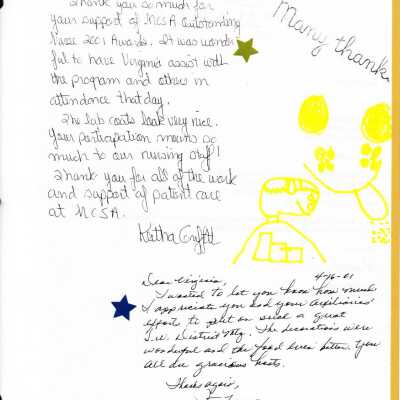 Thank you so much for
your support of NCSA Outstanding
Nurse 2001 Awards. It was wonder-
ful to have Virginia assist with
the program and others in
attendance that day.
The lab coats look very nice.
Your participation means so
much to our nursing staff!
Thank you for all of the work
and support of patient care
at NCSA.
Many thanks
Dear Virginia, 4-16-01
I wanted to let you know how much
I appreciate you and your Auxiliaries'
efforts to put on such a great
Mtg. The decorations were
wonderful and the food even better. You
all are gracious hosts.
Thanks again,